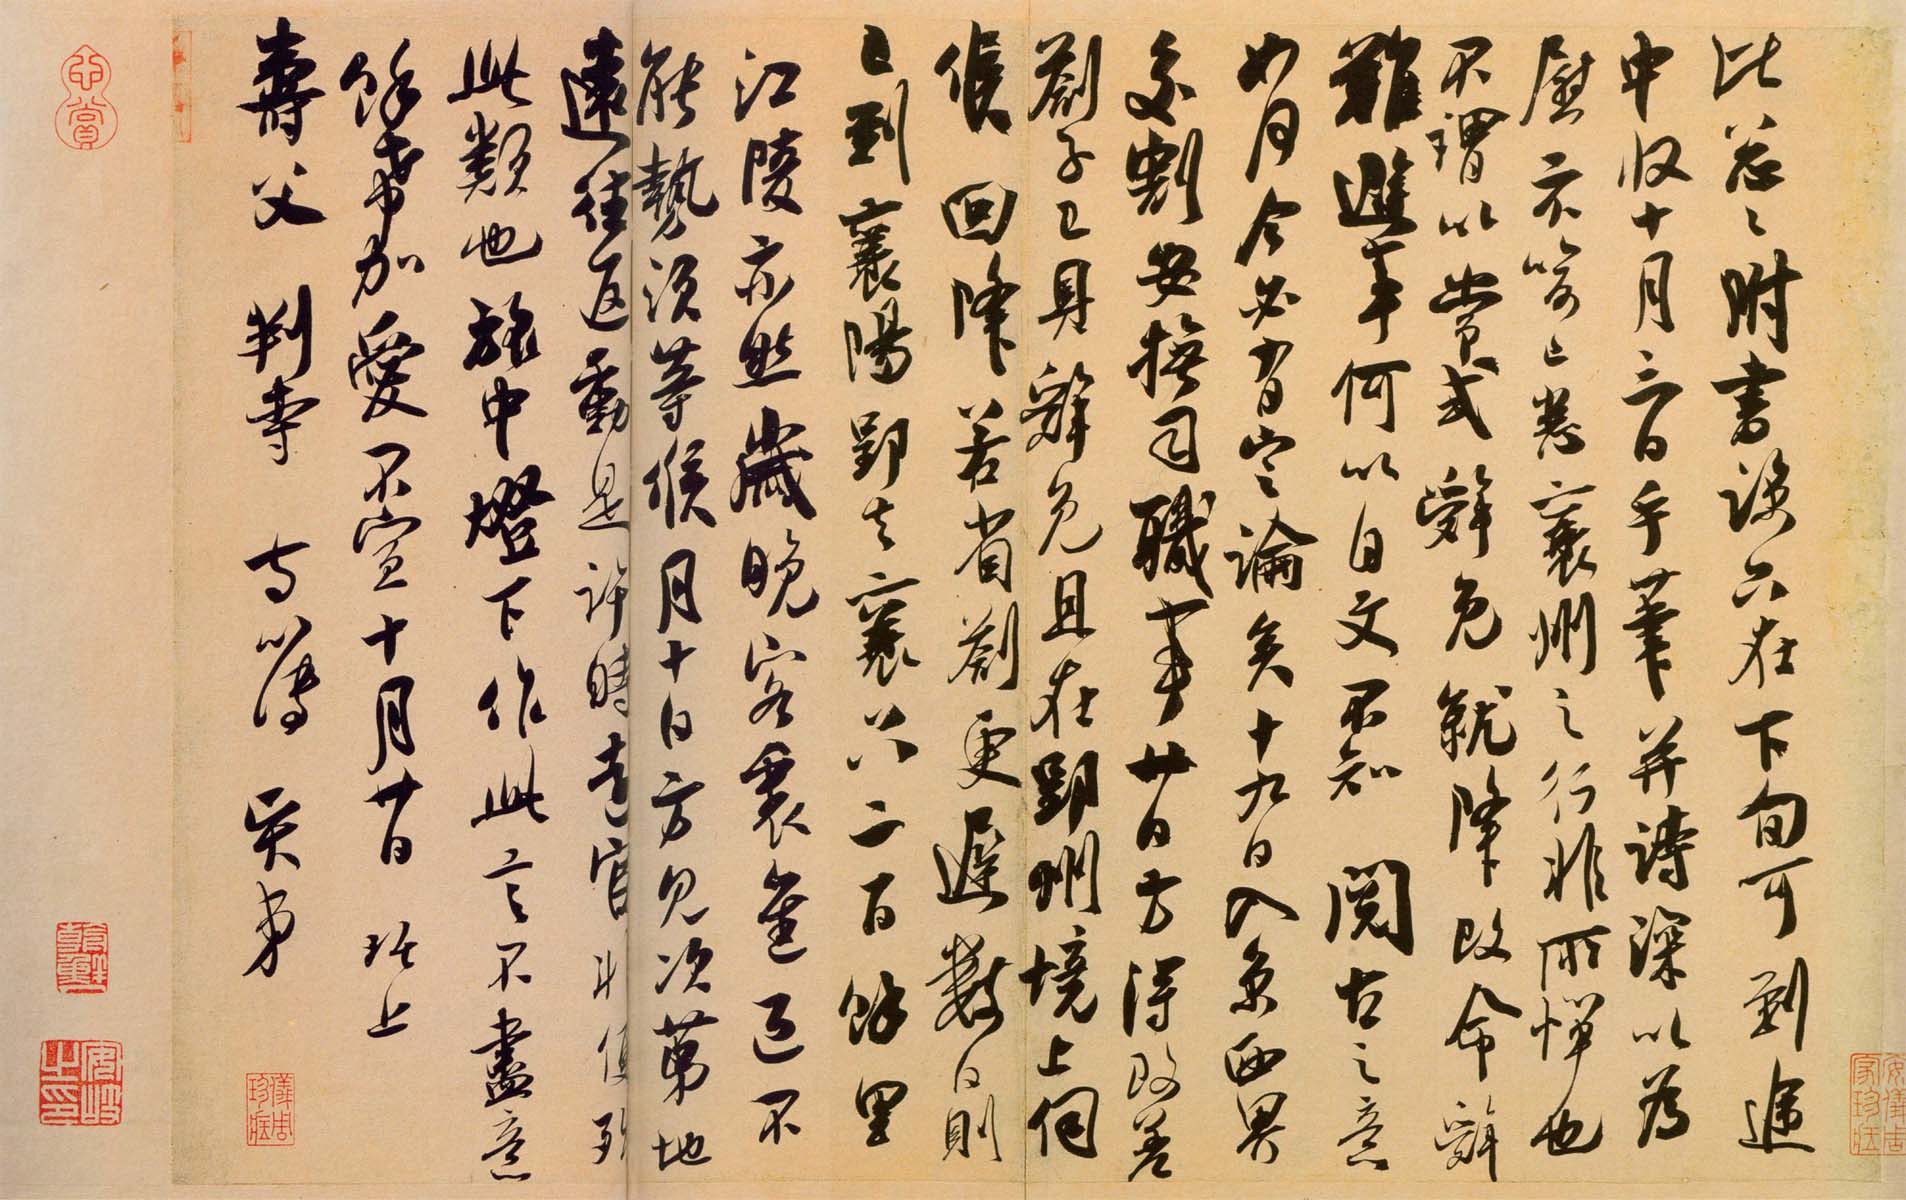 比忩忩附書諒只在下旬可到途
中收十月三日手筆并詩深以為
慰示喻已悉襄州之行非所憚也
不謂以嘗或辭免就降改命辭
難避事何以自文不知 閱古之意
如何今必有定論矣十九日入京西界
交割安撫司職事廿日方得改差
劄子已具辭免且在郢州境上伺
候 回降若省劄更遲數日則
已到襄陽郢去襄只二百餘里
江陵亦然歲晚客裏進退不
能勢須等候月十日方見次第地
遠往返動是許時遠官非便殆
此類也旅中燈下作此言不盡意
餘希加愛不宣十月廿日 琚上
壽父 判寺 寺簿 賢弟
心賞
安岐之印
儀周珍藏
安儀周家珍藏